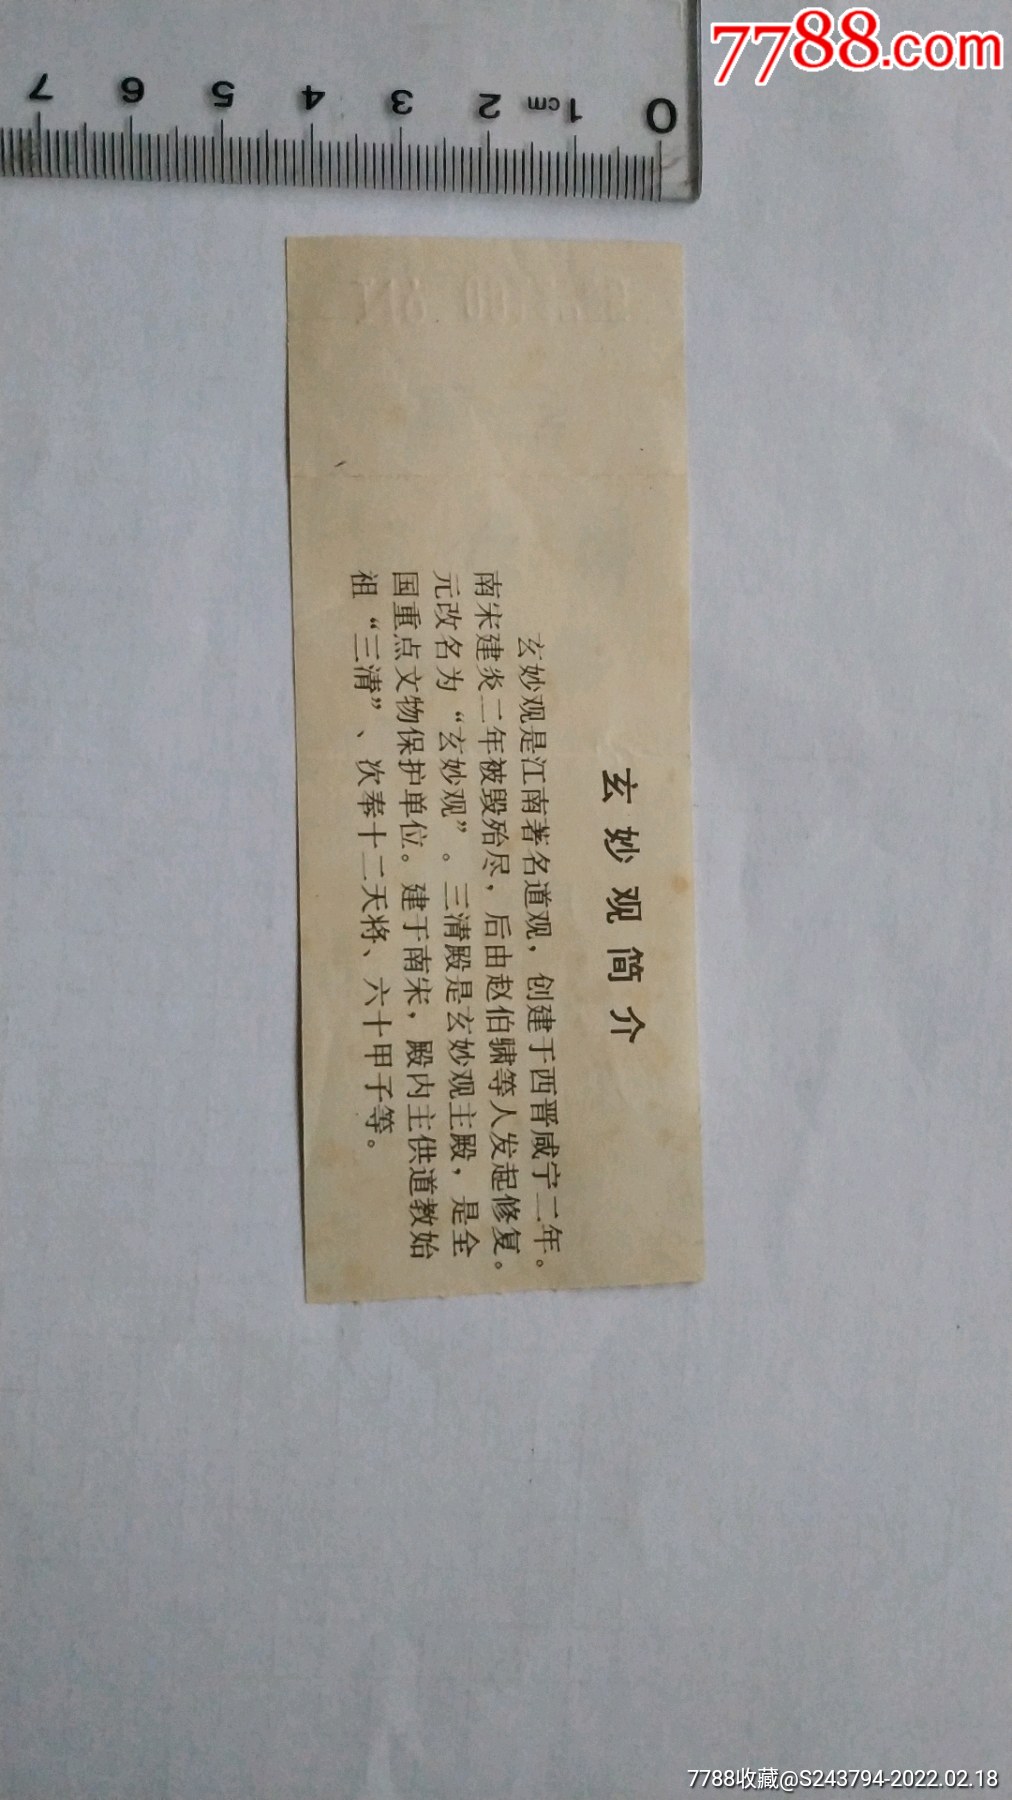 7788.com
0 1cm 2 3 4 5 6 7
玄妙观简介
玄妙观是江南著名道观，创建于西晋咸宁二年。
南宋建炎二年被毁殆尽，后由赵伯骕等人发起修复。
元改名为“玄妙观”。三清殿是玄妙观主殿，是全
国重点文物保护单位。建于南宋，殿内主供道教始
祖“三清”、次奉十二天将、六十甲子等。
7788收藏@S243794-2022.02.18